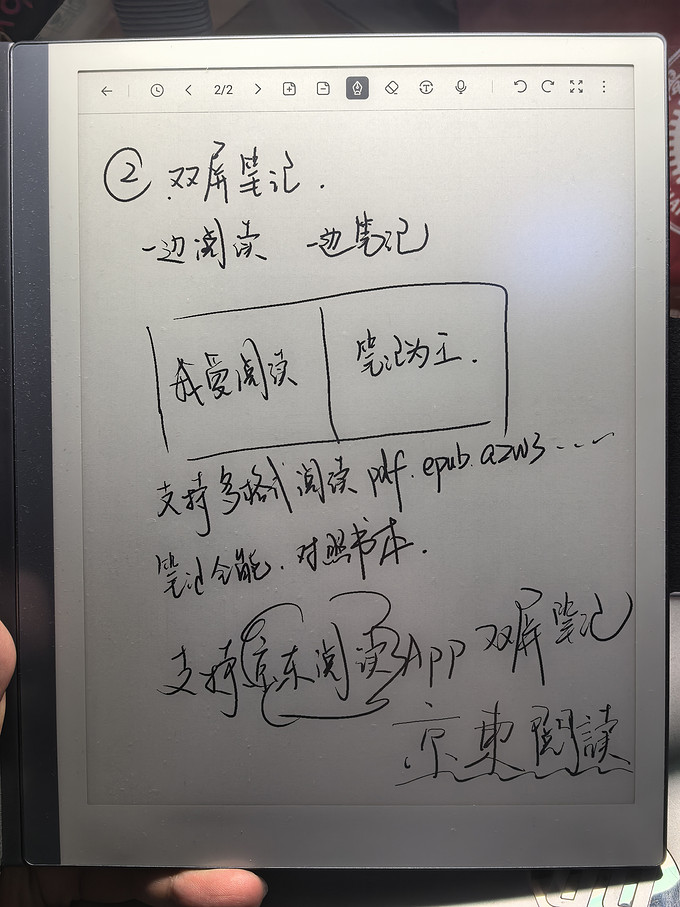 2/2
② 双屏笔记.
一边阅读 一边笔记
我爱阅读
笔记为主.
支持多格式阅读 pdf. epub. azw3 ......
笔记全能. 对照书本.
支持京东阅读App 双屏笔记
京東閱讀